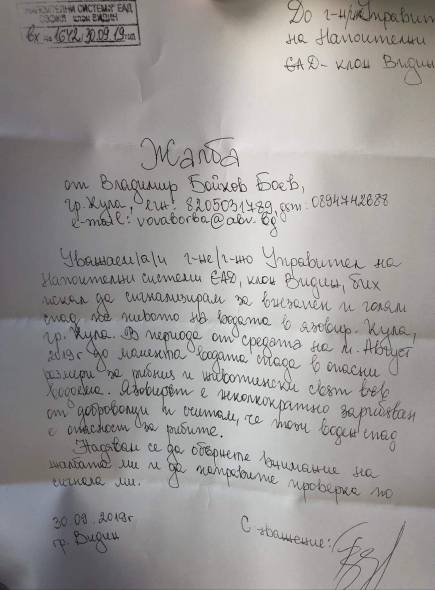 НАПОИТЕЛНИ СИСТЕМИ ЕАД
СОФИЯ клон ВИДИН
Вх. на 1672/30.09.19 год.
До г-н/жа Управит
на Напоителни
ЕАД - клон Видин
Жалба
от Владимир Бойков Боев,
гр. Кула, егн: 8205031789, gsm: 0894742688
e-mail: vovaborba@abv.bg
Уважаем/а/и г-не/г-жо Управител на
Напоителни системи ЕАД, клон Видин, бих
искал да сигнализирам за внезапен и голям
спад на нивото на водата в язовир. Кула,
гр. Кула. В периода от средата на м. Август
2019г до момента водата спада в опасни
размери за рибния и животински свят във
водоема. Язовирът е неколкократно зарибяван
от доброволци и считам, че този воден спад
е опасност за рибите.
Надявам се да обърнете внимание на
жалбата ми и да направите проверка по
сигнала ми.
30.09.2019г
гр. Видин
С уважение: